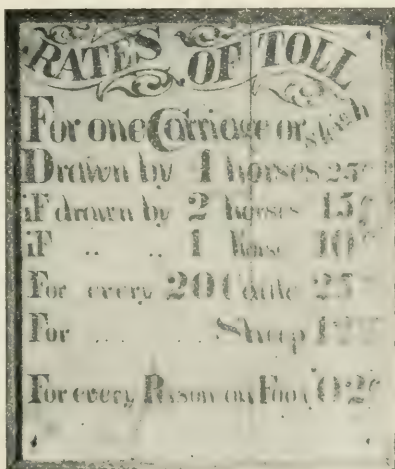 RATES OF TOLL
For one Carriage or Sleigh
Drawn by 4 horses 25c
iF drawn by 2 horses 15c
iF .. .. 1 Horse 10c
For every 20 Cattle 25c
For .... .... Sheep
For every Person on Foot 02c